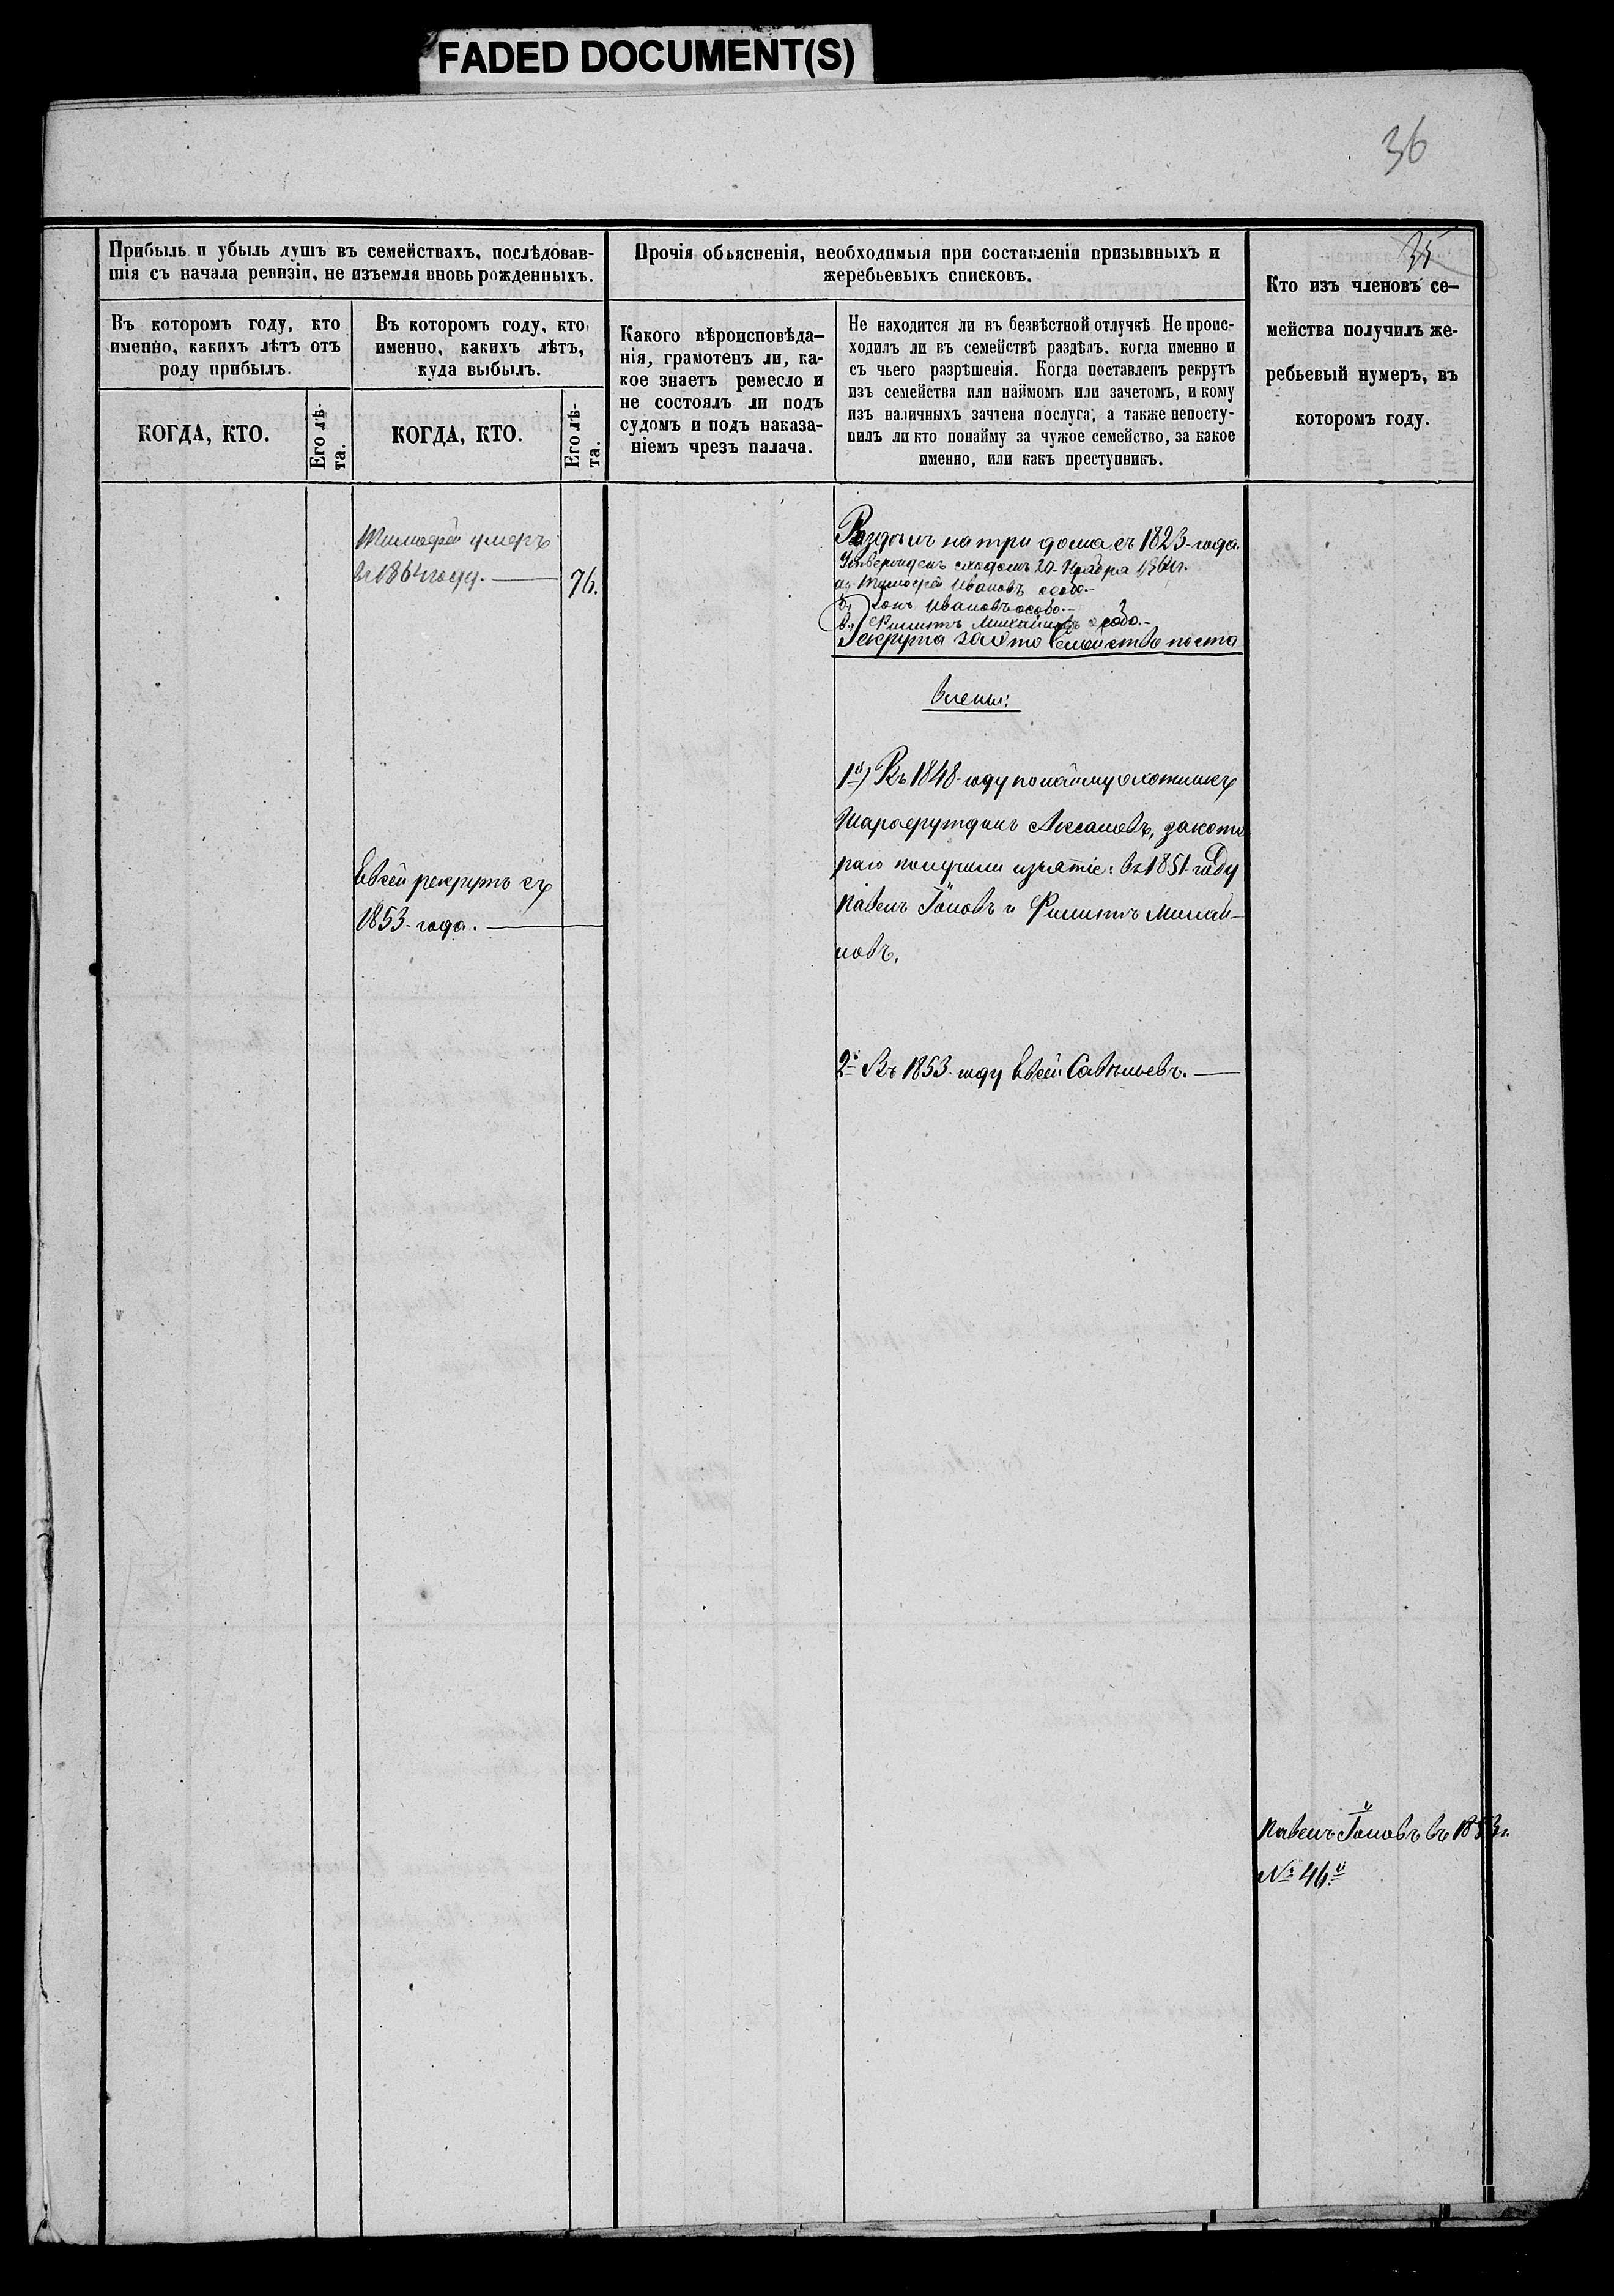 FADED DOCUMENT(S)
36
35
Прибыль и убыль душъ въ семействахъ, послѣдовав-
шія съ начала ревизіи, не изъемля вновь рожденныхъ.
Въ которомъ году, кто
именно, какихъ лѣтъ отъ
роду прибылъ.
КОГДА, КТО.
Его лѣ-
та.
Въ которомъ году, кто
именно, какихъ лѣтъ,
куда выбылъ.
КОГДА, КТО.
Его лѣ-
та.
Прочія объясненія, необходимыя при составленіи призывныхъ и
жеребьевыхъ списковъ.
Какого вѣроисповѣда-
нія, грамотенъ ли, ка-
кое знаетъ ремесло и
не состоялъ ли подъ
судомъ и подъ наказа-
ніемъ чрезъ палача.
Не находится ли въ безвѣстной отлучкѣ Не проис-
ходилъ ли въ семействѣ раздѣлъ. когда именно и
съ чьего разрѣшенія. Когда поставленъ рекрутъ
изъ семейства или наймомъ или зачетомъ, и кому
изъ наличныхъ зачтена послуга, а также непосту-
пилъ ли кто понайму за чужое семейство, за какое
именно, или какъ преступникъ.
Кто изъ членовъ се-
мейства получилъ же-
ребьевый нумеръ, въ
которомъ году.
Тимофей умеръ
въ 1864 году.
76.
Евсей рекрутъ съ
1853 года.
Раздѣлъ на три дома съ 1823 года.
Утвержденъ сходомъ 20 Ноября
а, Тимофей Ивановъ особо.
б, Іонъ Ивановъ особо.
в, Филиппъ Михайловъ особо.
Рекрута за это семейство поста
влены:
1й) Въ 1848 году по найму охотникъ
Шарафутдинъ, за кото
раго получили изъятіе: въ 1851 году
Павелъ Іоновъ и Филиппъ Михай-
ловъ.
2й Въ 1853 году Евсей Савельевъ.
Павелъ Іоновъ въ 1853 г.
№ 46й